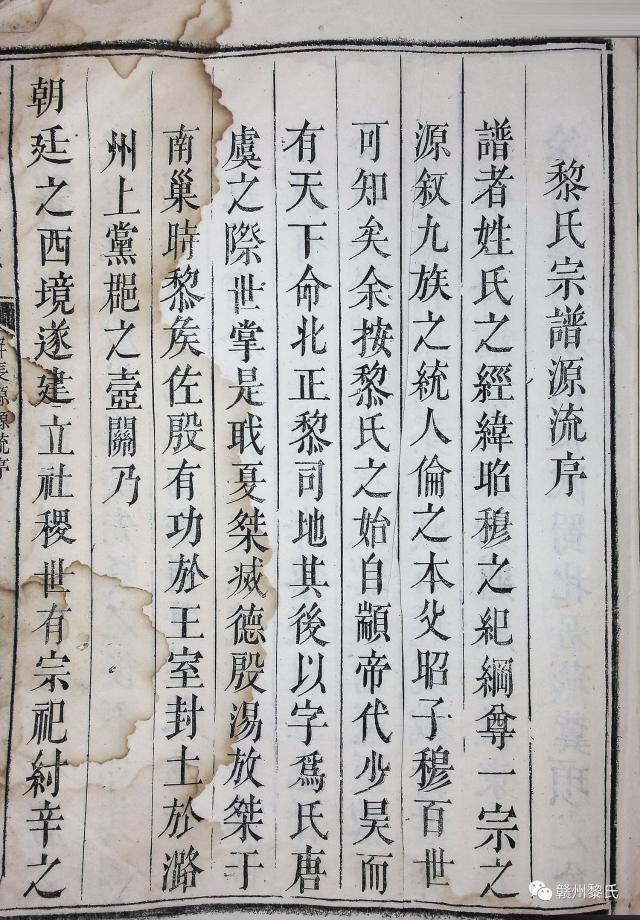 黎氏宗譜源流序
譜者姓氏之經緯昭穆之紀綱尊一宗之
源叙九族之統人倫之本父昭子穆百世
可知矣余按黎氏之始自顓帝代少昊而
有天下命北正黎司地其後以字爲氏唐
虞之際世掌是職夏桀滅德殷湯放桀于
南巢時黎矦佐殷有功於王室封土於潞
州上黨郡之壺關乃
朝廷之西境遂建立社稷世有宗祀紂辛之
赣州黎氏